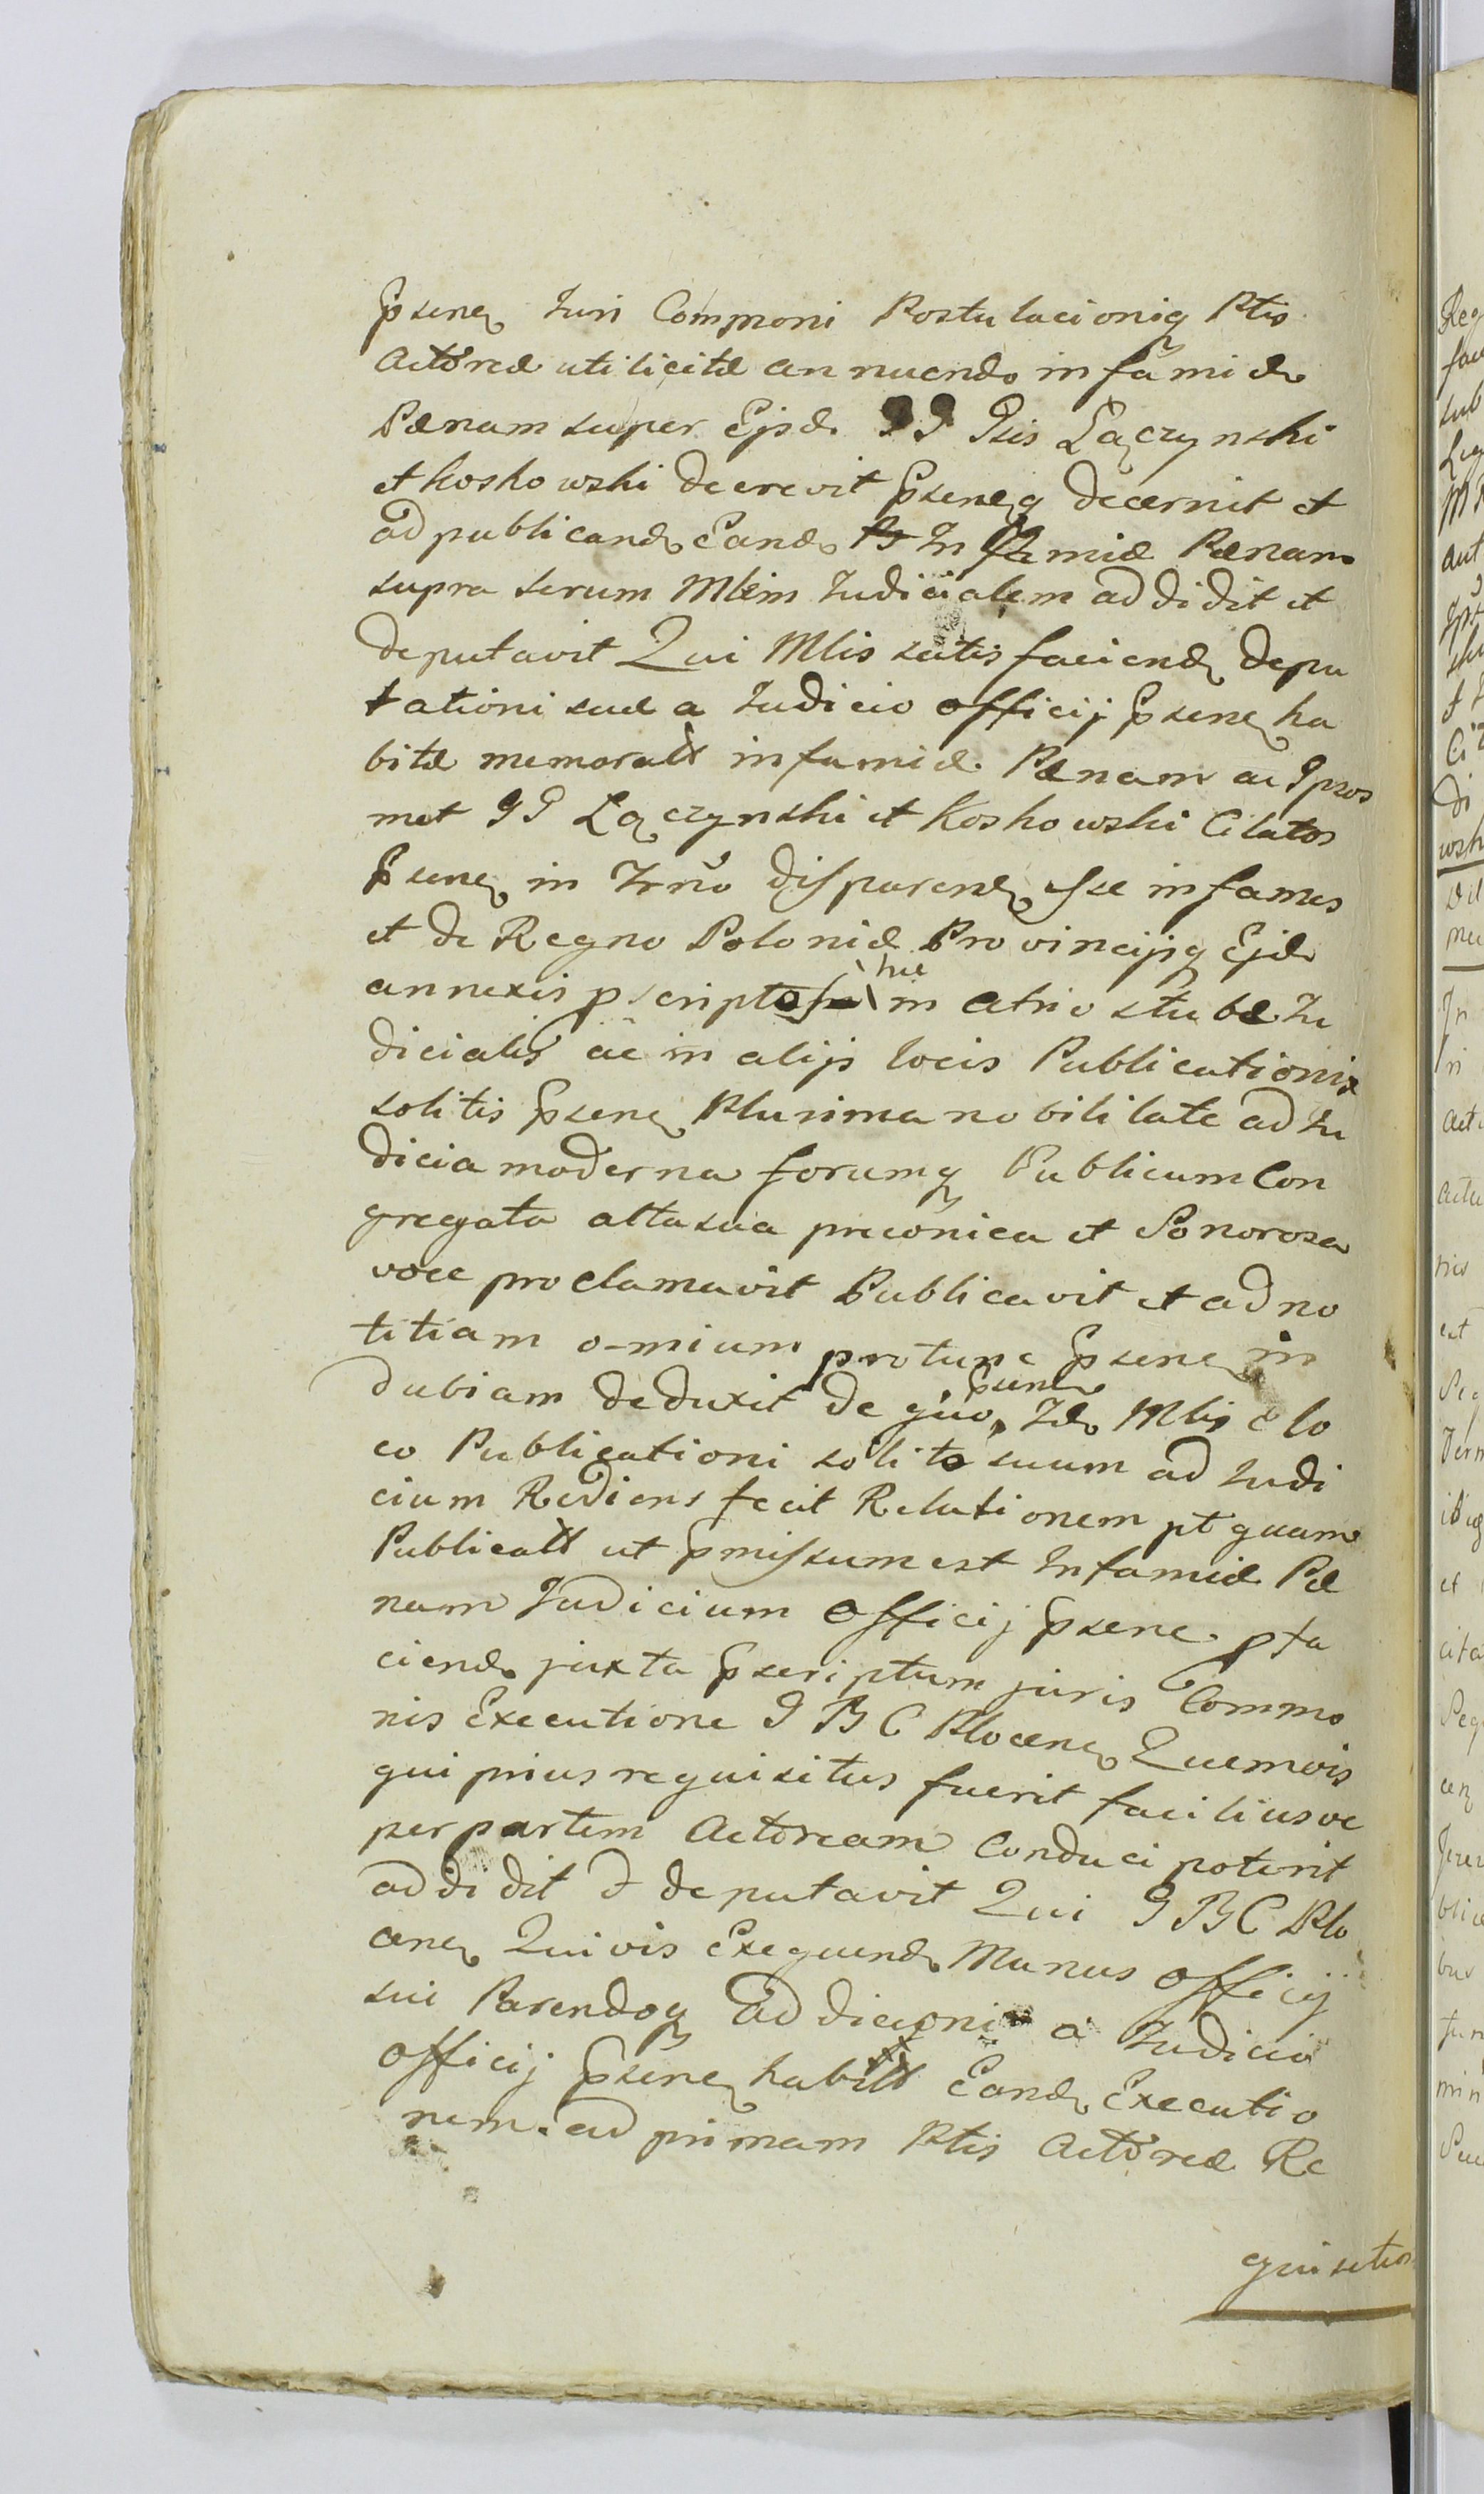 Psens Juri Commoni Postulacioniq Ptis
Actoreæ uti licitæ annuendo infamiæ
Pænam super Ejsd. JJ Psis Łączynski
et Koskowski decrevit Psensq decernit et
ad publicand Eand Infamiæ Pænam
supra serum Mlem Judicialem addidit et
deputavit Qui Mlis satisfaciend depu
tationi suæ a Judicio officij Psens ha
bitæ memoratt infamiæ Pænam ac Ipsos
met JJ Łączynski et Koskowski Citatos
Psens in Trño disparend esse infames
et de Regno Poloniæ Provincijsq Ejd
annexis pscriptos hic in atrio stubæ Ju
dicialis ac in alijs locis Publicationis
solitis Psens Plurima nobilitate ad Ju
dicia moderna forumq Publicum Con
gregata alta sua preconica et Sonorosa
voce proclamavit Publicavit et ad no
titiam o-mium protunc Psens in
dubiam deduxit de quo Psens Id Mlis e lo
co Publicationi solito suum ad Judi
cium Rediens fecit Relationem pt quam
Publicatt ut Pmissum est Infamiæ Pæ
nam Judicium Officij Psens p fa
ciend juxta Pscriptum juris Commo
nis Executione J B C Plocens Quemvis
qui prius requisitus fuerit faciliusve
per partem Actoream Conduci poterit
addidit d deputavit Qui J B C Plo
cens Quivis Exequend Munus officij
sui Parendoq Addicioni a Judicio
officij Psens habitt Eand Executio
nem ad primam Ptis Actoreæ Re
quisition